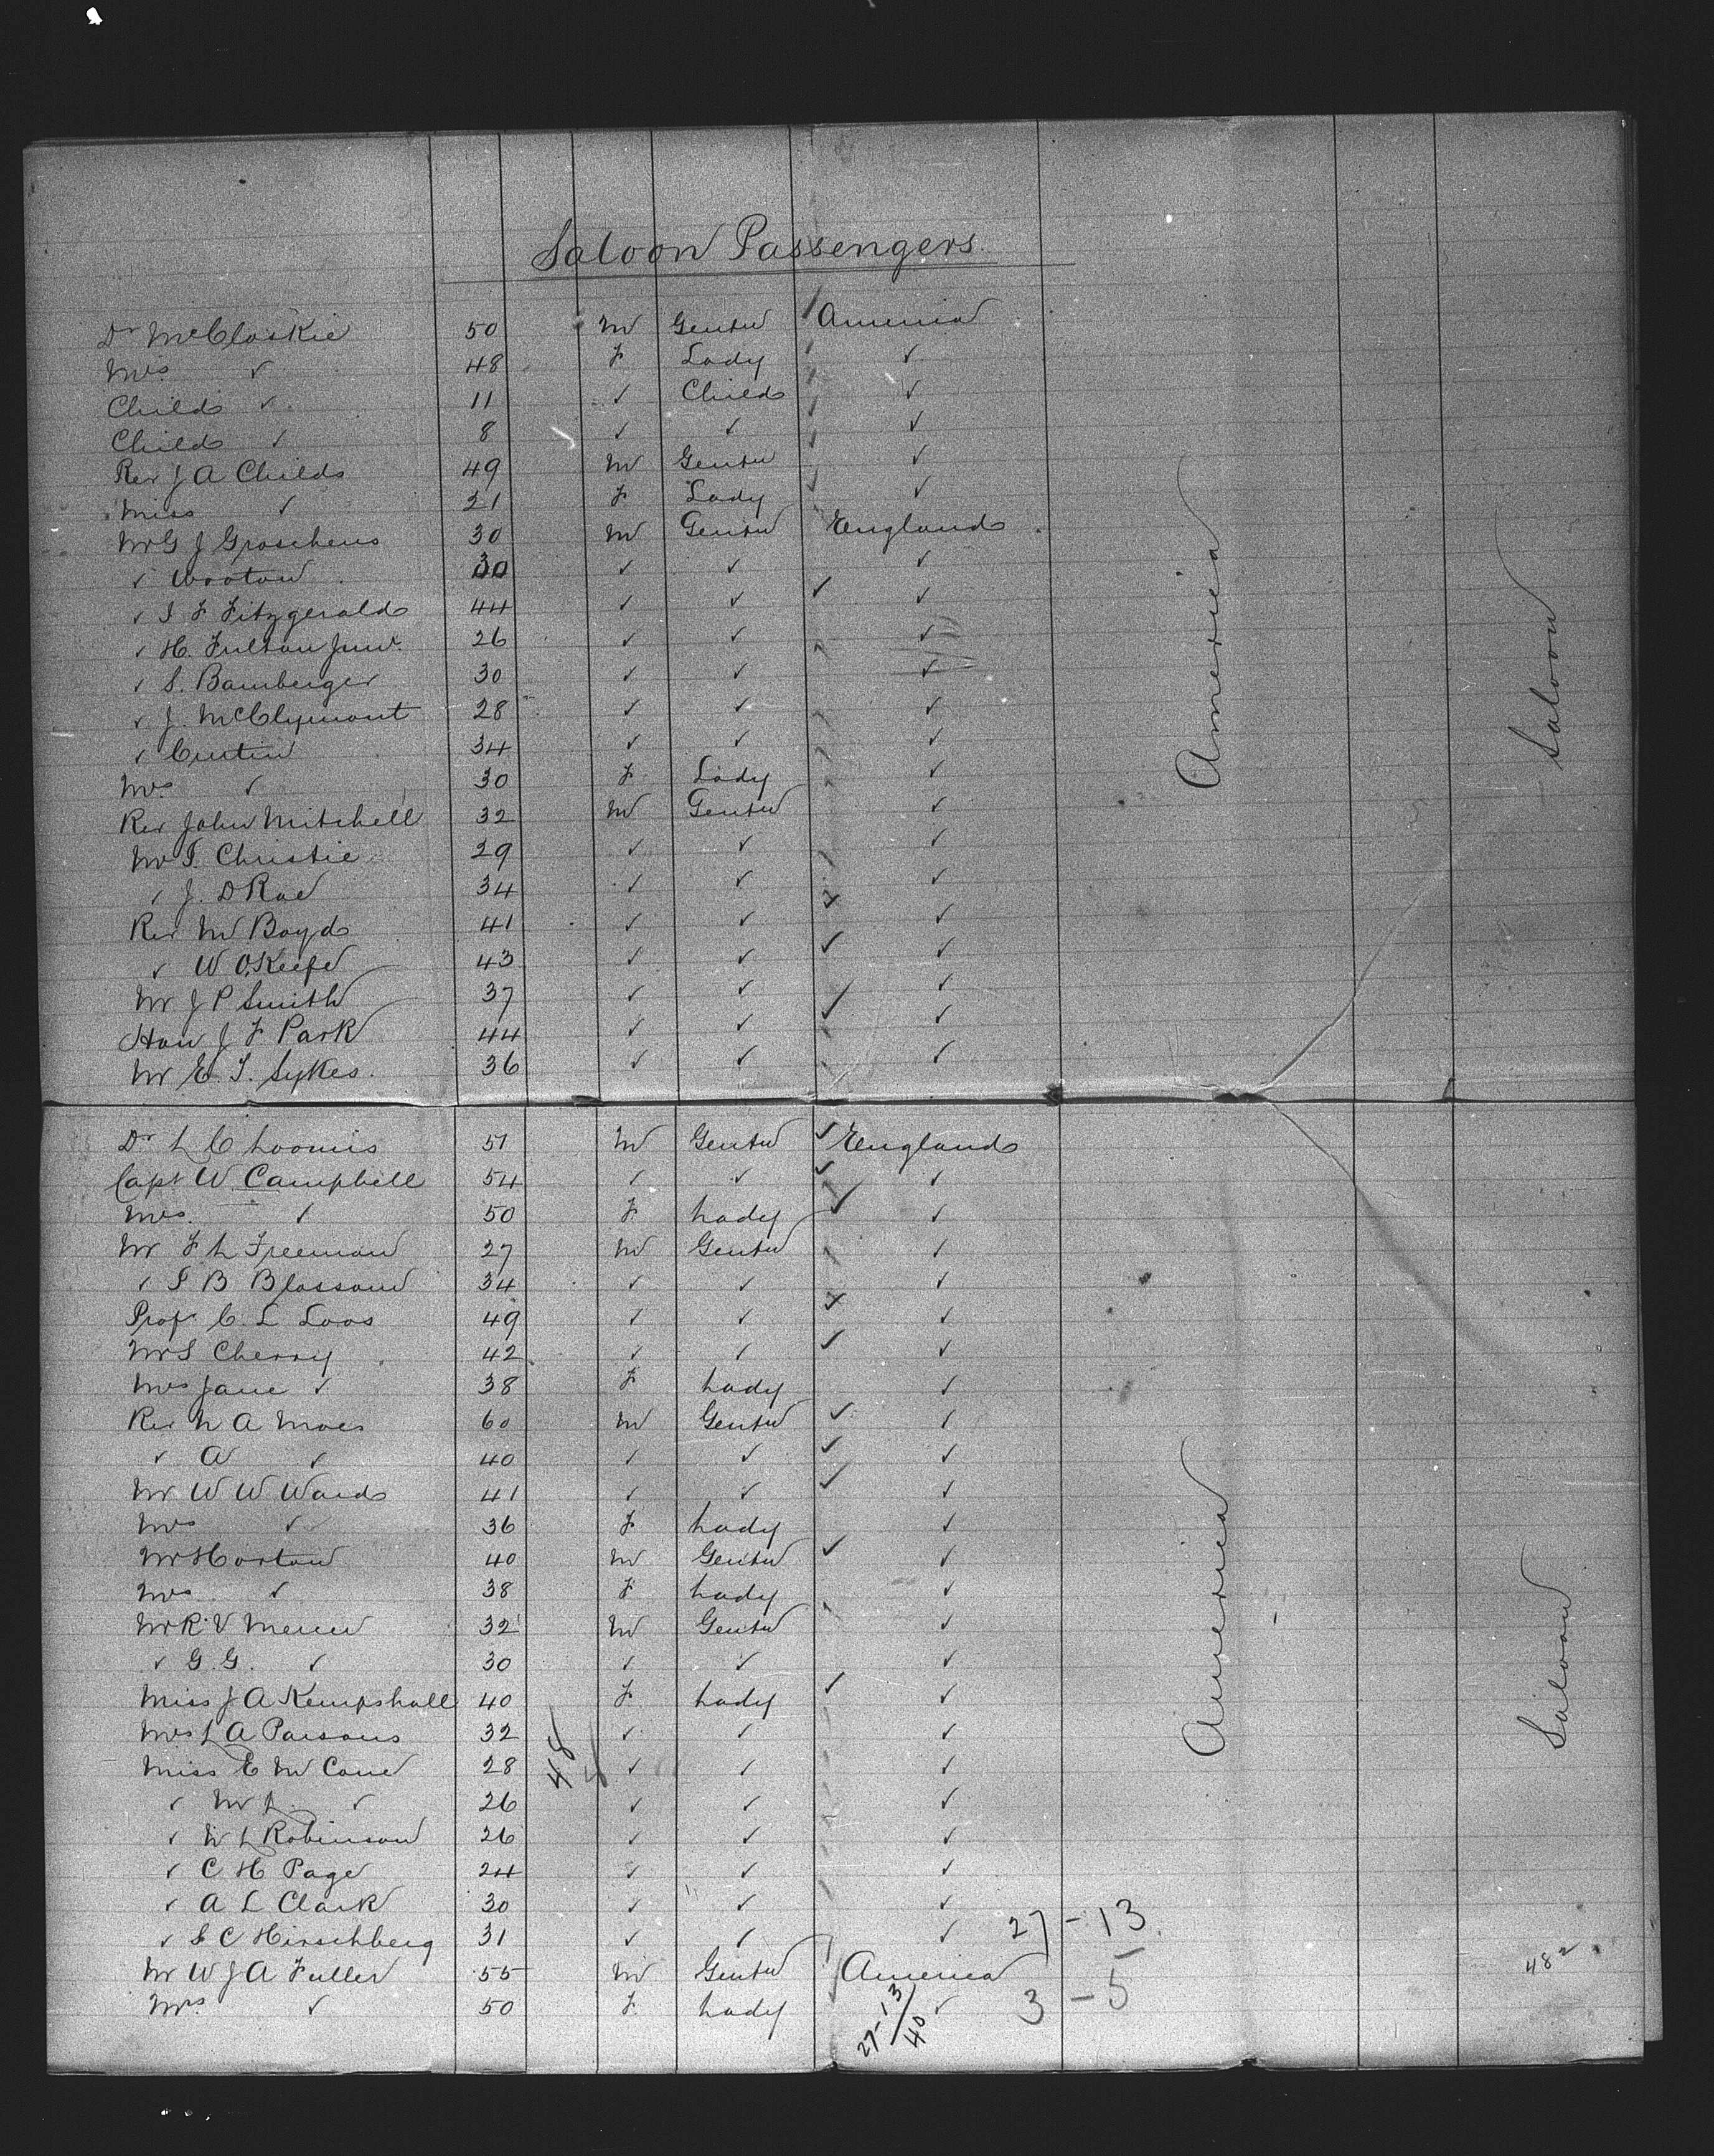 Saloon Passengers
Dr McCloskie 50 M Gentn America
Mrs ✓ 48 F Lady ✓
Child ✓ 11 ✓ Child ✓
Child ✓ 8 ✓ ✓ ✓
Rev J A Childs 49 M Gentn ✓
Miss ✓ 21 F Lady ✓
Mr G J Groschens 30 M Gentn England
✓ Wooton 30 ✓ ✓ ✓
✓ S F Fitzgerald 44 ✓ ✓ ✓
✓ H. Fulton Junr. 26 ✓ ✓ ✓
✓ S. Bamberger 30 ✓ ✓ ✓
✓ J. McClymont 28 ✓ ✓ ✓
✓ Curtin 34 ✓ ✓ ✓
Mrs ✓ 30 F Lady ✓
Rev John Mitchell 32 M Gentn ✓
Mr T. Christie 29 ✓ ✓ ✓
✓ J. D Rae 34 ✓ ✓ ✓
Rev M Boyd 41 ✓ ✓ ✓
✓ W O'Keefe 43 ✓ ✓ ✓
Mr J P Smith 37 ✓ ✓ ✓
Hon J F Park 44 ✓ ✓ ✓
Mr E. T. Sykes. 36 ✓ ✓ ✓
America
Saloon
Dr L C Loomis 51 M Gentn England
Capt W Campbell 54 ✓ ✓ ✓
Mrs. ✓ 50 F Lady ✓
Mr F L Freeman 27 M Gentn ✓
✓ T B Blossom 34 ✓ ✓ ✓
Prof C. L Loos 49 ✓ ✓ ✓
Mr S Cherry 42 ✓ ✓ ✓
Mrs Jane ✓ 38 F Lady ✓
Rev N A Moes 60 M Gentn ✓
✓ A ✓ 40 ✓ ✓ ✓
Mr W W Ward 41 ✓ ✓ ✓
Mrs ✓ 36 F Lady ✓
Mr Horton 40 M Gentn ✓
Mrs ✓ 38 F Lady ✓
Mr R. V 32 M Gentn ✓
✓ G. G. ✓ 30 ✓ ✓ ✓
Miss J A Kempshall 40 F Lady ✓
Mrs L A Parsons 32 ✓ ✓ ✓
Miss E M Cone 28 ✓ ✓ ✓
✓ M L ✓ 26 ✓ ✓ ✓
✓ N L Robinson 26 ✓ ✓ ✓
✓ C H Page 24 ✓ ✓ ✓
✓ A L Clark 30 ✓ ✓ ✓
✓ S C Hirschberg 31 ✓ ✓ ✓ 27 - 13
Mr W J A Fuller 55 M Gentn America
Mrs. ✓ 50 F Lady ✓ 3 - 5
27-13/40
48
America
Saloon
482